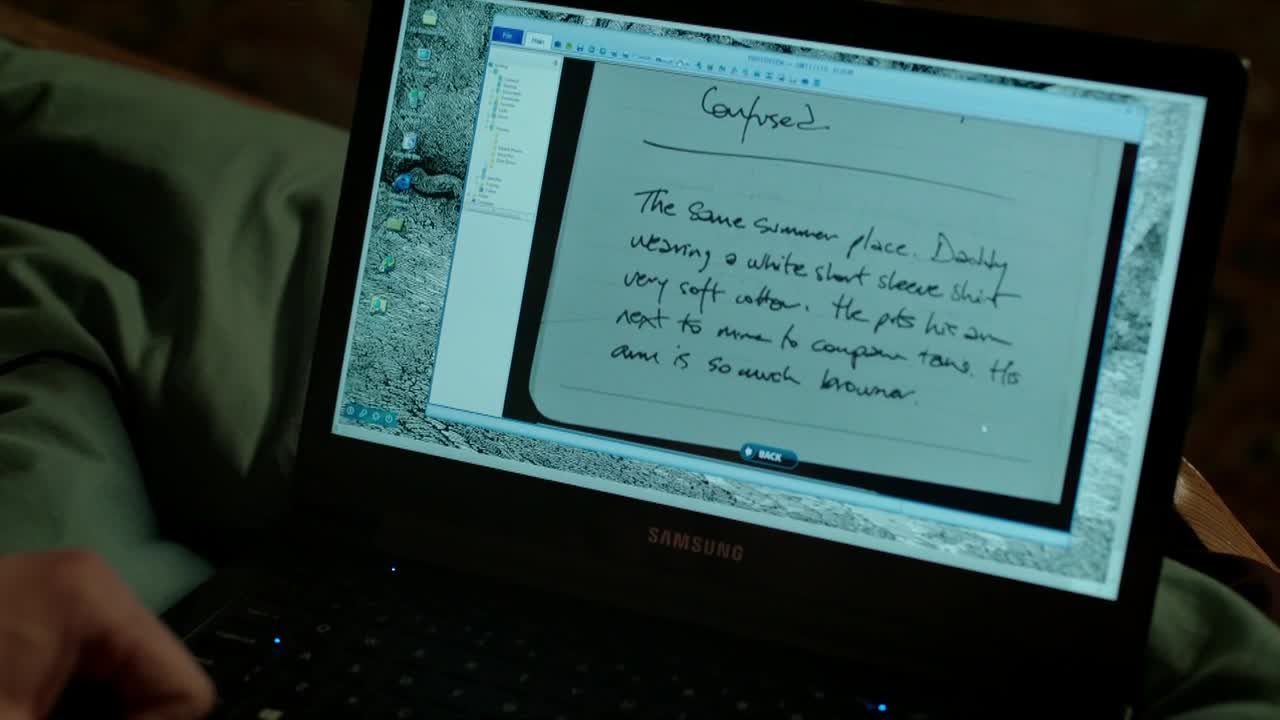 File
Main
Confused
The same summer place. Daddy
wearing a white short sleeve shirt
very soft cotton. He puts his arm
next to mine to compare tans. His
arm is so much browner.
BACK
SAMSUNG